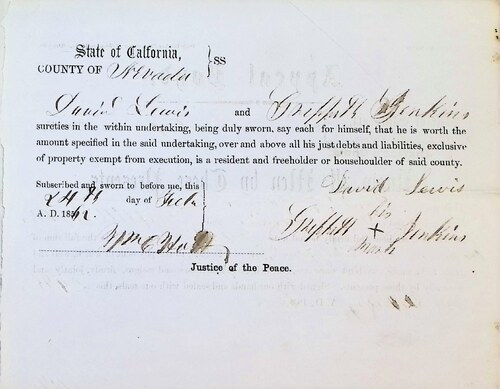 State of Calfornia,
COUNTY OF Nevada } SS
David Lewis and Griffith Jenkins
sureties in the within undertaking, being duly sworn. say each for himself, that he is worth the
amount specified in the said undertaking, over and above all his just debts and liabilities, exclusive
of property exempt from execution, is a resident and freeholder or householder of said county.
Subscribed and sworn to before me, this
24th day of
A. D. 186
David Lewis
his
Griffith + Jenkins
mark
Wm C
Justice of the Peace.